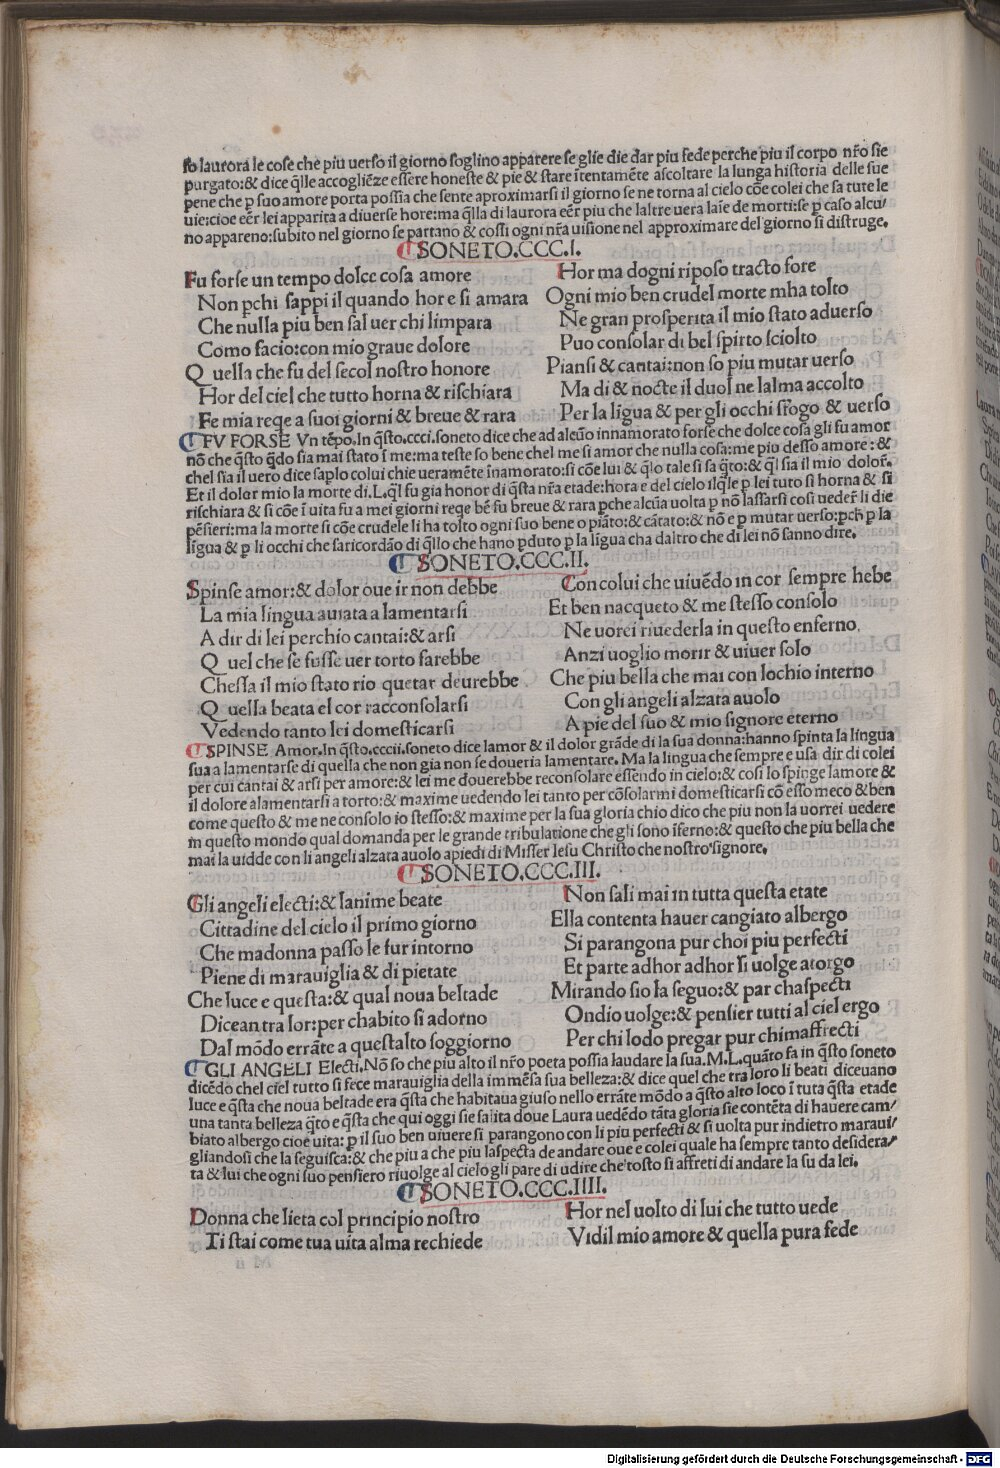 so laurora le cose che piu uerso il giorno soglino apparere se glie die dar piu fede perche piu il corpo nr̃o sie
purgato:& dice q̃lle accogliẽze essere honeste & pie & stare ĩtentamẽte ascoltare la lunga historia delle sue
pene che p suo amore porta possia che sente aproximarsi il giorno se ne torna al cielo cõe colei che sa tute le
uie:cioe eẽr lei apparita a diuerse hore:ma q̃lla di laurora eẽr piu che laltre uera laĩe de morti:se p caso alcu/
no appareno:subito nel giorno se partano & cossi ogni nr̃a uisione nel approximare del giorno si distruge.
SONETO.CCC.I.
Fu forse un tempo dolce cosa amore
Non pchi sappi il quando hor e si amara
Che nulla piu ben sal uer chi limpara
Como facio:con mio graue dolore
Q uella che fu del secol nostro honore
Hor del ciel che tutto horna & rischiara
Fe mia reqe a suoi giorni & breue & rara
Hor ma dogni riposo tracto fore
Ogni mio ben crudel morte mha tolto
Ne gran prosperita il mio stato aduerso
Puo consolar di bel spirto sciolto
Piansi & cantai:non so piu mutar uerso
Ma di & nocte il duol ne lalma accolto
Per la ligua & per gli occhi sfogo & uerso
FV FORSE Vn tẽpo.In q̃sto.ccci.soneto dice che ad alcũo innamorato forse che dolce cosa gli fu amor
nõ che q̃sto q̃do sia mai stato ĩ me:ma teste so bene chel me si amor che nulla cosa:me piu desso amore:&
chel sia il uero dice saplo colui chie ueramẽte ĩnamorato:si cõe lui & q̃lo tale si sa q̃to:& q̃l sia il mio dolor̃.
Et il dolor mio la morte di.L.q̃l fu gia honor di q̃sta nr̃a etade:hora e del cielo ilq̃le p lei tuto si horna & si
rischiara & si cõe ĩ uita fu a mei giorni reqe bẽ fu breue & rara pche alcũa uolta p nõ lassarsi cosi ueder̃ li die
pẽsieri:ma la morte si cõe crudele li ha tolto ogni suo bene o piãto:& cãtato:& nõ e p mutar uerso:pch p la
lĩgua & p li occhi che saricordão di q̃llo che hano pduto p la lĩgua cha daltro che di lei nõ sanno dire.
SONETO.CCC.II.
Spinse amor:& dolor oue ir non debbe
La mia lingua auiata a lamentarsi
A dir di lei perchio cantai:& arsi
Q uel che se fusse uer torto farebbe
Chessa il mio stato rio quetar deurebbe
Q uella beata el cor racconsolarsi
Vedendo tanto lei domesticarsi
Con colui che uiuẽdo in cor sempre hebe
Et ben nacqueto & me stesso consolo
Ne uorei riuederla in questo enferno.
Anzi uoglio morir & uiuer solo
Che piu bella che mai con lochio interno
Con gli angeli alzata auolo
A pie del suo & mio signore eterno
SPINSE Amor.In q̃sto.cccii.soneto dice lamor & il dolor grãde di la sua donna:hanno spinta la lingua
sua a lamentarse di quella che non gia non se doueria lamentare. Ma la lingua che sempre e usa dir di colei
per cui cantai & arsi per amore:& lei me douerebbe reconsolare essendo in cielo:& cosi lo spinge lamore &
il dolore alamentarsi a torto:& maxime uedendo lei tanto per cõsolarmi domesticarsi cõ esso meco & ben
come questo & me ne consolo io stesso:& maxime per la sua gloria chio dico che piu non la uorrei uedere
in questo mondo qual domanda per le grande tribulatione che gli sono ĩferno:& questo che piu bella che
mai la uidde con li angeli alzata auolo apiedi di Misser Iesu Christo che nostro signore.
SONETO.CCC.III.
Gli angeli electi:& lanime beate
Cittadine del cielo il primo giorno
Che madonna passo le fur intorno
Piene di marauiglia & di pietate
Che luce e questa:& qual noua beltade
Dicean tra lor:per chabito si adorno
Dal mõdo errãte a questalto soggiorno
Non sali mai in tutta questa etate
Ella contenta hauer cangiato albergo
Si parangona pur choi piu perfecti
Et parte adhor adhor si uolge atorgo
Mirando sio la seguo:& par chaspecti
Ondio uolge:& pensier tutti al ciel ergo
Per chi lodo pregar pur chimaffrecti
GLI ANGELI Electi.Nõ so che piu alto il nr̃o poeta possia laudare la sua.M.L.quãto fa in q̃sto soneto
dicẽdo chel ciel tutto si fece marauiglia della immẽsa sua belleza:& dice quel che tra loro li beati diceuano
luce e q̃sta che noua beltade era q̃sta che habitaua giuso nello errãte mõdo a q̃sto alto loco ĩ tuta q̃sta etade
una tanta belleza q̃to e q̃sta che qui oggi sie salita doue Laura uedẽdo tãta gloria sie contẽta di hauere cam/
biato albergo cioe uita: p il suo ben uiuere si parangono con li piu perfecti & si uolta pur indietro maraui/
gliandosi che la seguisca:& che piu a che piu laspecta de andare oue e colei quale ha sempre tanto desidera/
ta & lui che ogni suo pensiero riuolge al cielo gli pare di udire che tosto si affreti di andare la su da lei.
SONETO.CCC.IIII.
Donna che lieta col principio nostro
Ti stai come tua uita alma rechiede
Hor nel uolto di lui che tutto uede
Vidil mio amore & quella pura fede
Digitalisierung gefördert durch die Deutsche Forschungsgemeinschaft - DFG